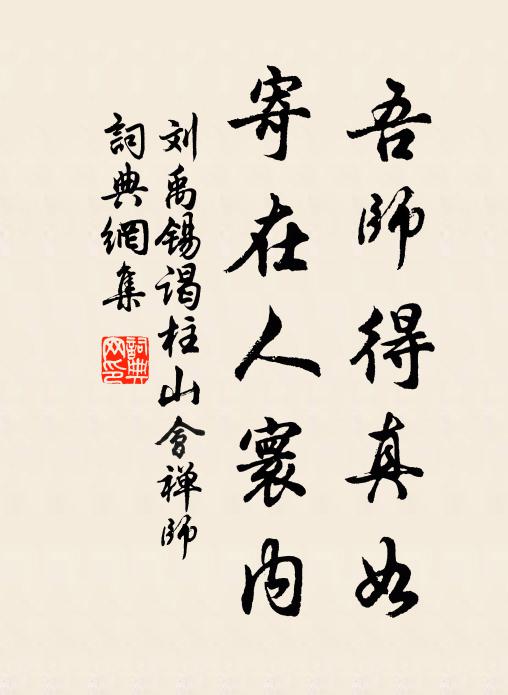 吾師得真如
寄在人寰内
刘禹锡谒柱山會禅师
詞典網集
詞典
网印